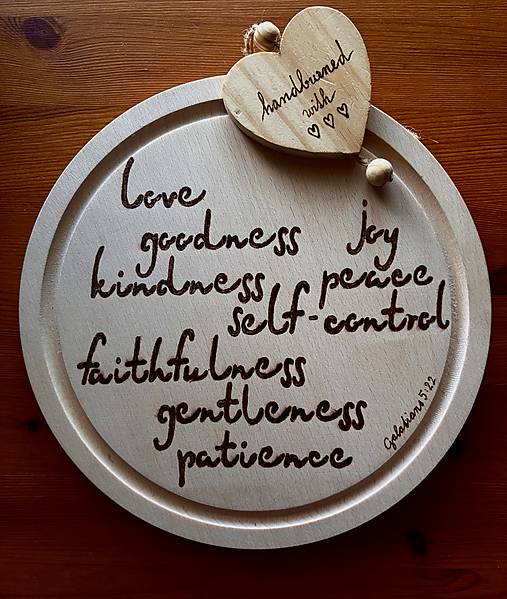 handburned
with
love
goodness joy
kindness peace
self-control
faithfulness
gentleness
patience
Galatians 5:22